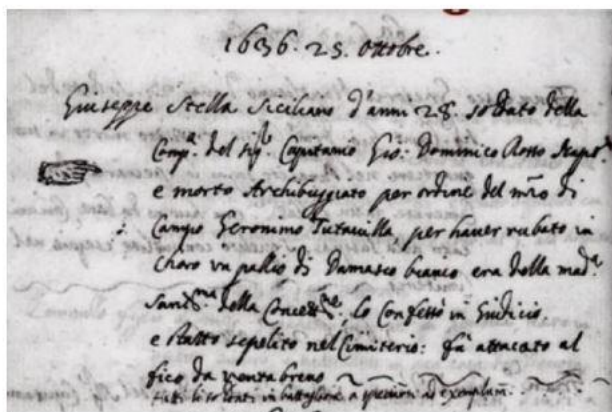 1636. 25. ottobre.
Giuseppe Stella Siciliano d'anni 28. soldato della
Comp.ª del sig.r Capitanio Gio: Dominico Rosso Nap.
e morto Archibuggiato per ordine del mro di
Campo Geronimo Tutavilla, per haver rubato in
choro un pallio di Damasco bianco era della mad.e
Sant.ma della Concett.ne, lo Confessò in Giudicio,
e stato sepelito nel Cimiterio: fù attacato al
fico da
tutti li soldati in battaglione a ad exemplum.